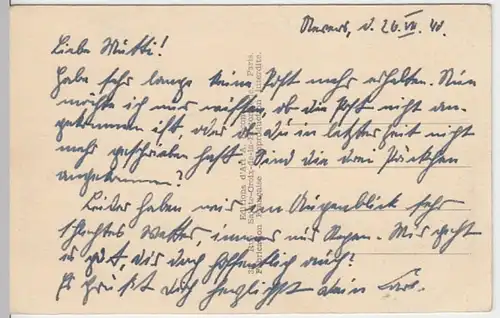 Nevers, d. 26. VII. 40.
Liebe Mutti!
Habe sehr lange keine Post mehr erhalten. Nun
möchte ich nur wissen, ob die Post nicht an-
gekommen ist, oder ob Du in letzter Zeit nicht
mehr geschrieben hast. Sind die drei Päckchen
angekommen?
Leider haben wir im Augenblick sehr
schlechtes Wetter, immer nur Regen. Mir geht
es gut, Dir doch hoffentlich auch?
Es grüßt Dich herzlichst Dein
Editions d'Art
Fabrication Française Reproduction Interdite.
Paris.